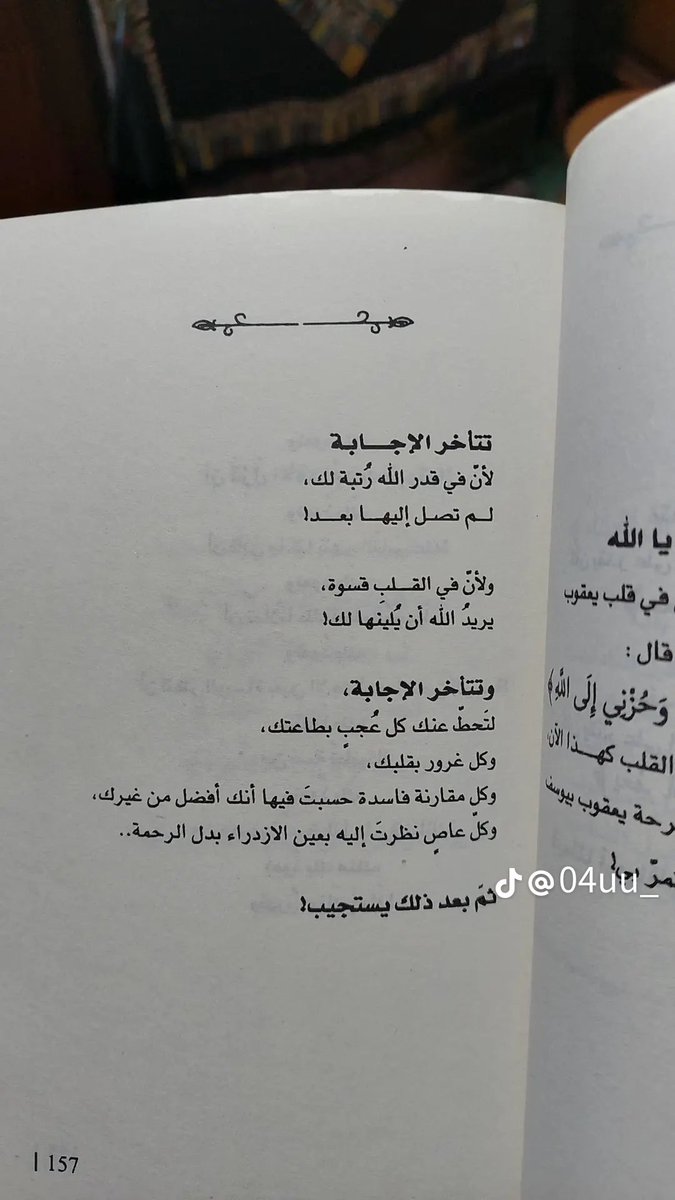 تتأخر الإجـــابـة
لأنّ في قدر الله رُتبة لك،
لــم تصـل إليهــا بعــد!
ولأنّ في القــلبِ قسوة،
يريدُ الله أن يُلينها لك!
وتتأخر الإجابة،
لتَحطّ عنك كل عُجبٍ بطاعتك،
وكل غرور بقلبك،
وكلّ مقارنة فاسدة حسبتَ فيها أنك أفضل من غيرك،
وكلّ عاصٍ نظرتَ إليه بعين الازدراء بدل الرحمة..
ثمَ بعد ذلك يستجيب!
157
يا الله
في قلب يعقوب
قال:
وَحُزْنِي إِلَى اللَّهِ﴾
القلب كهــذا الآن،
رحة يعقوب بيوسف
@04uu_